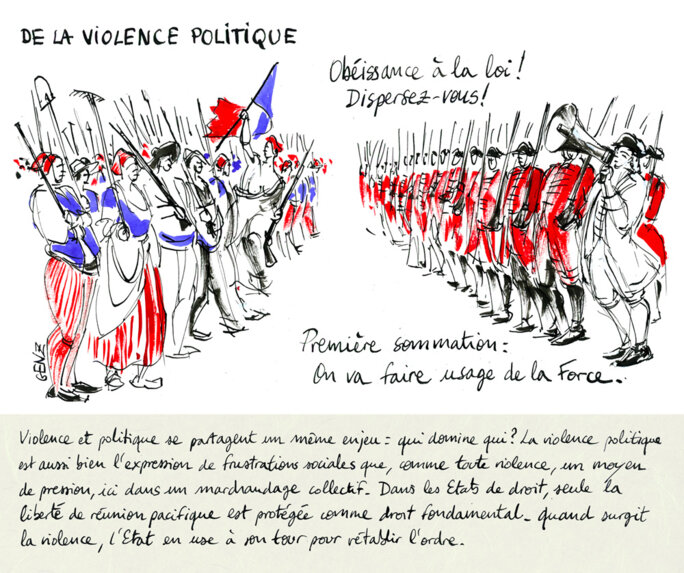 DE LA VIOLENCE POLITIQUE
Obéissance à la loi!
Dispersez-vous!
GEUZ
Première sommation:
On va faire usage de la Force.
Violence et politique se partagent un même enjeu: qui domine qui? La violence politique
est aussi bien l'expression de frustrations sociales que, comme toute violence, un moyen
de pression, ici dans un marchandage collectif. Dans les Etats de droit, seule la
liberté de réunion pacifique est protégée comme droit fondamental. Quand surgit
la violence, l'Etat en use à son tour pour rétablir l'ordre.